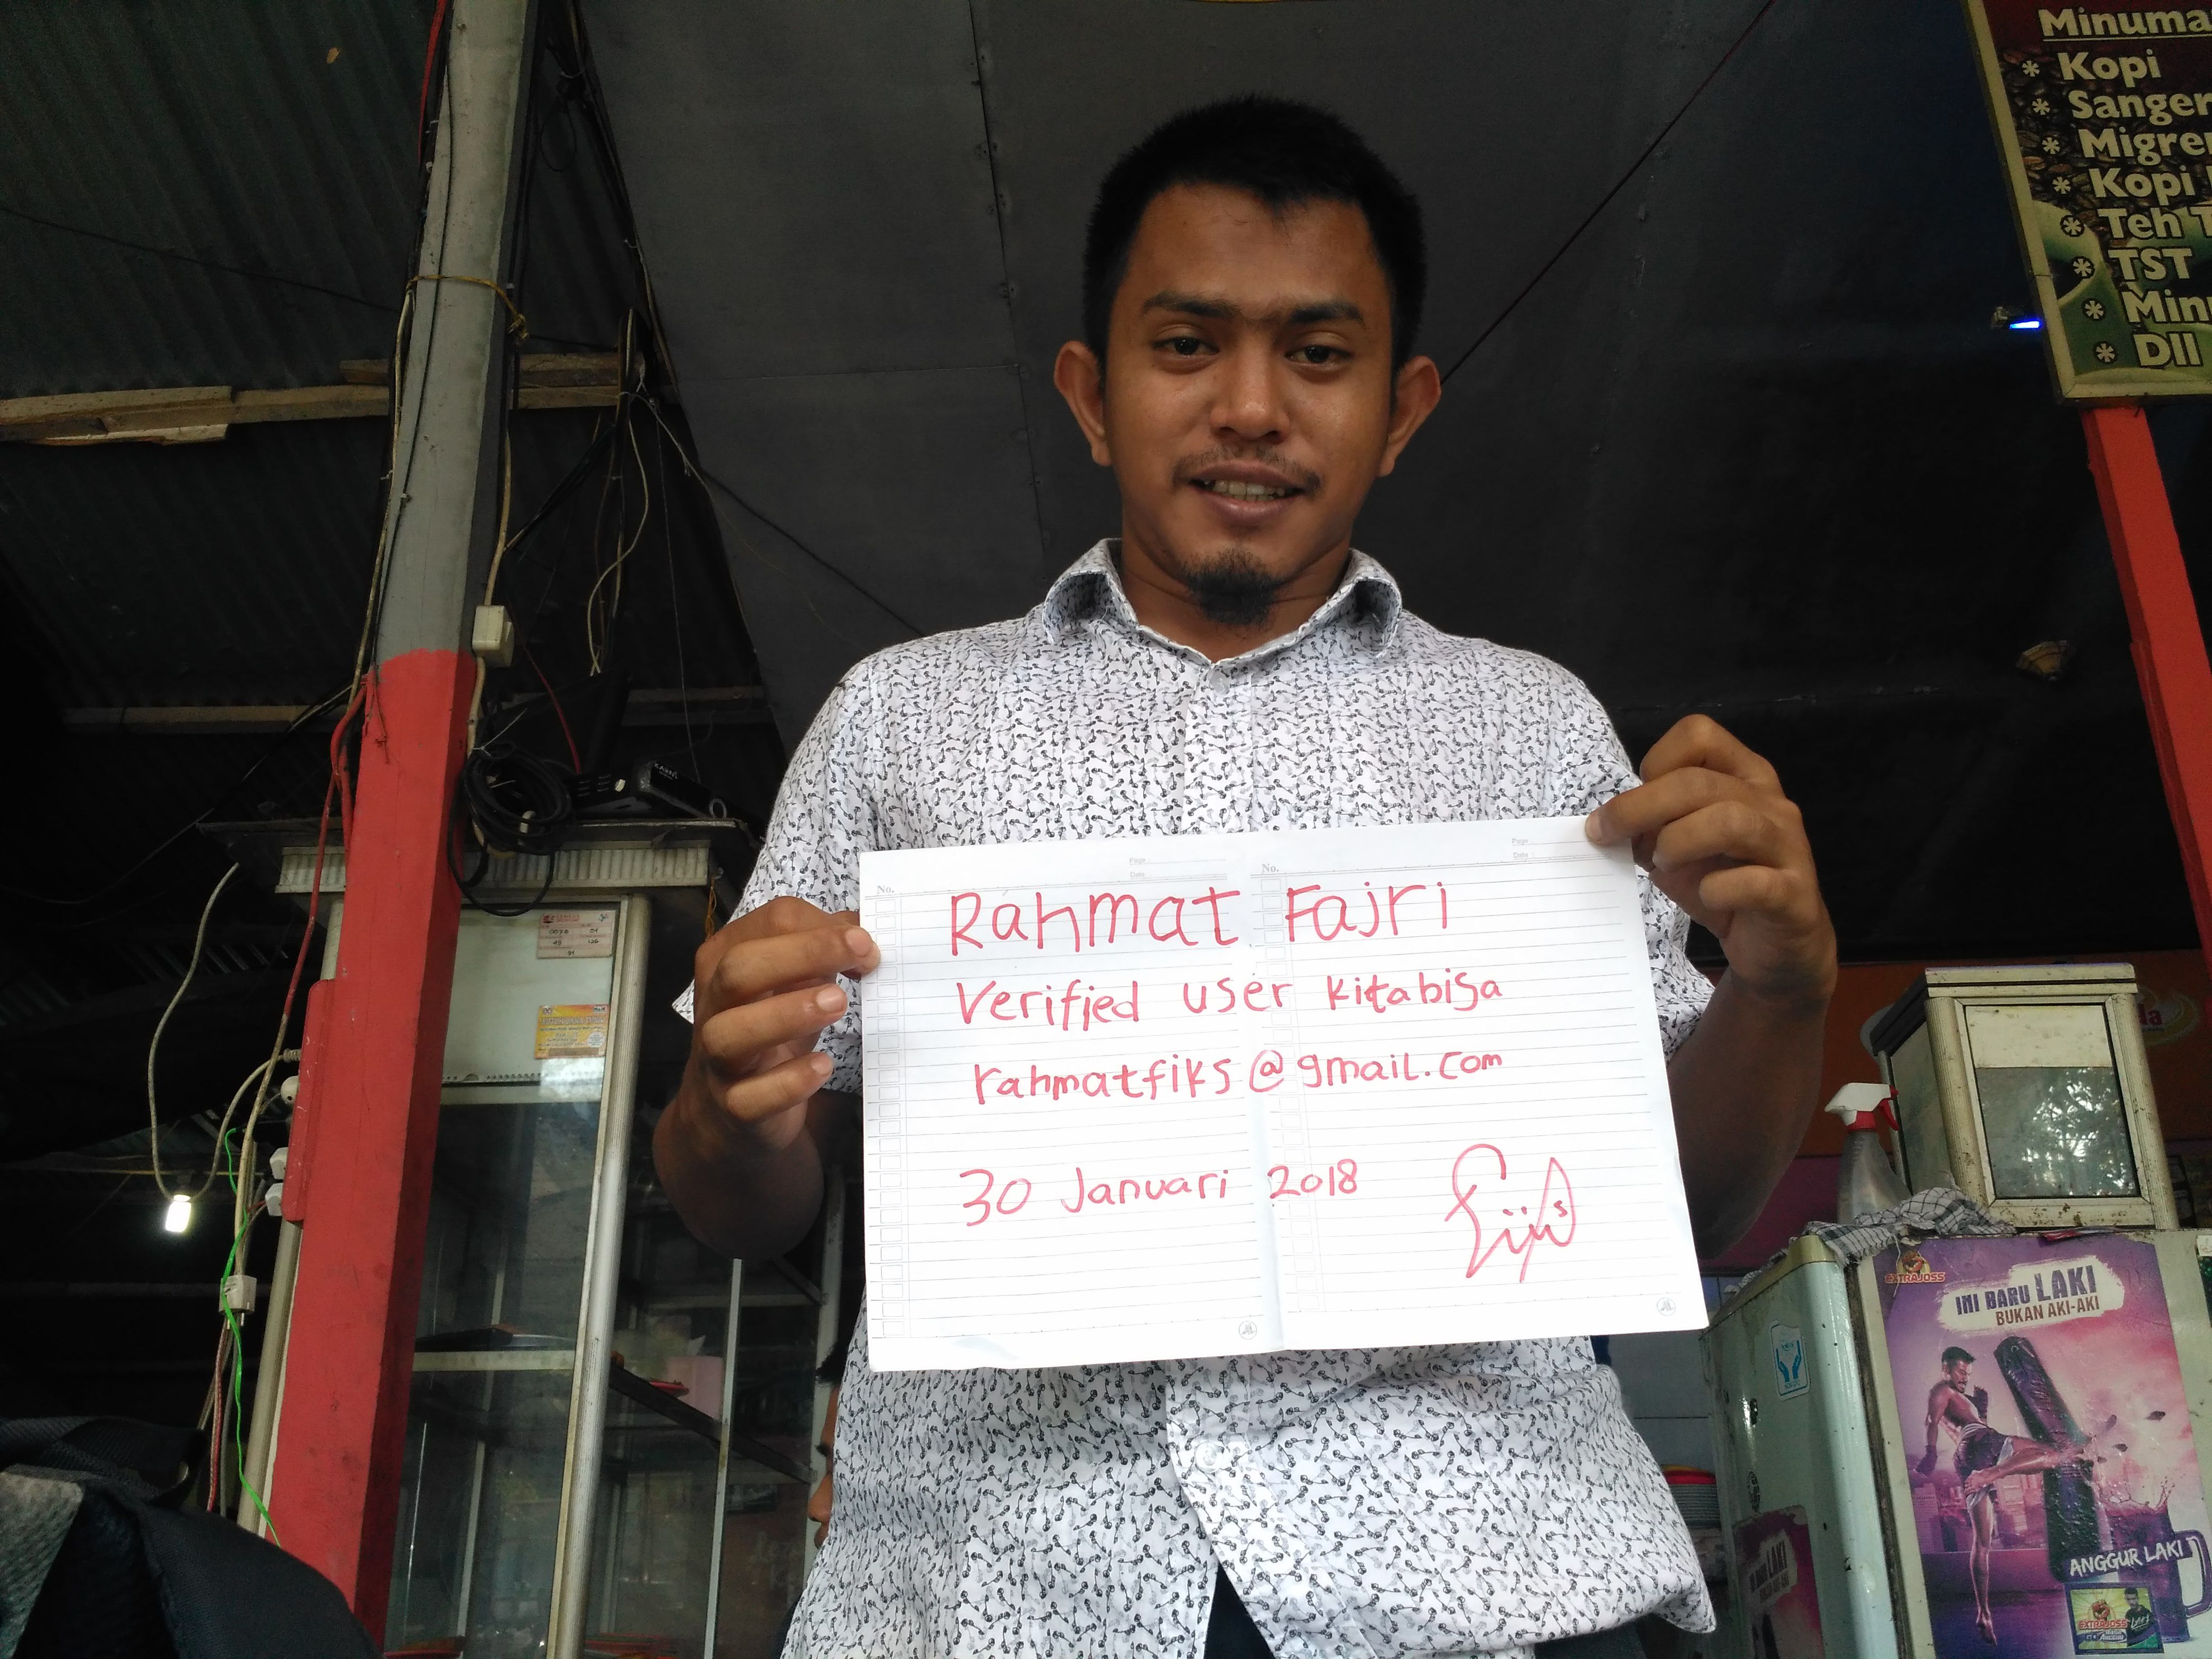 Minuma
* Kopi
* Sanger
* Migre
* Kopi
* Teh T
* TST
* Min
* Dll
No.
Page
Date
No.
Page
Date
Rahmat Fajri
Verified user kitabisa
rahmatfiks@gmail.com
30 Januari 2018
EXTRAJOSS
INI BARU LAKI
BUKAN AKI-AKI
ANGGUR LAKI
EXTRAJOSS